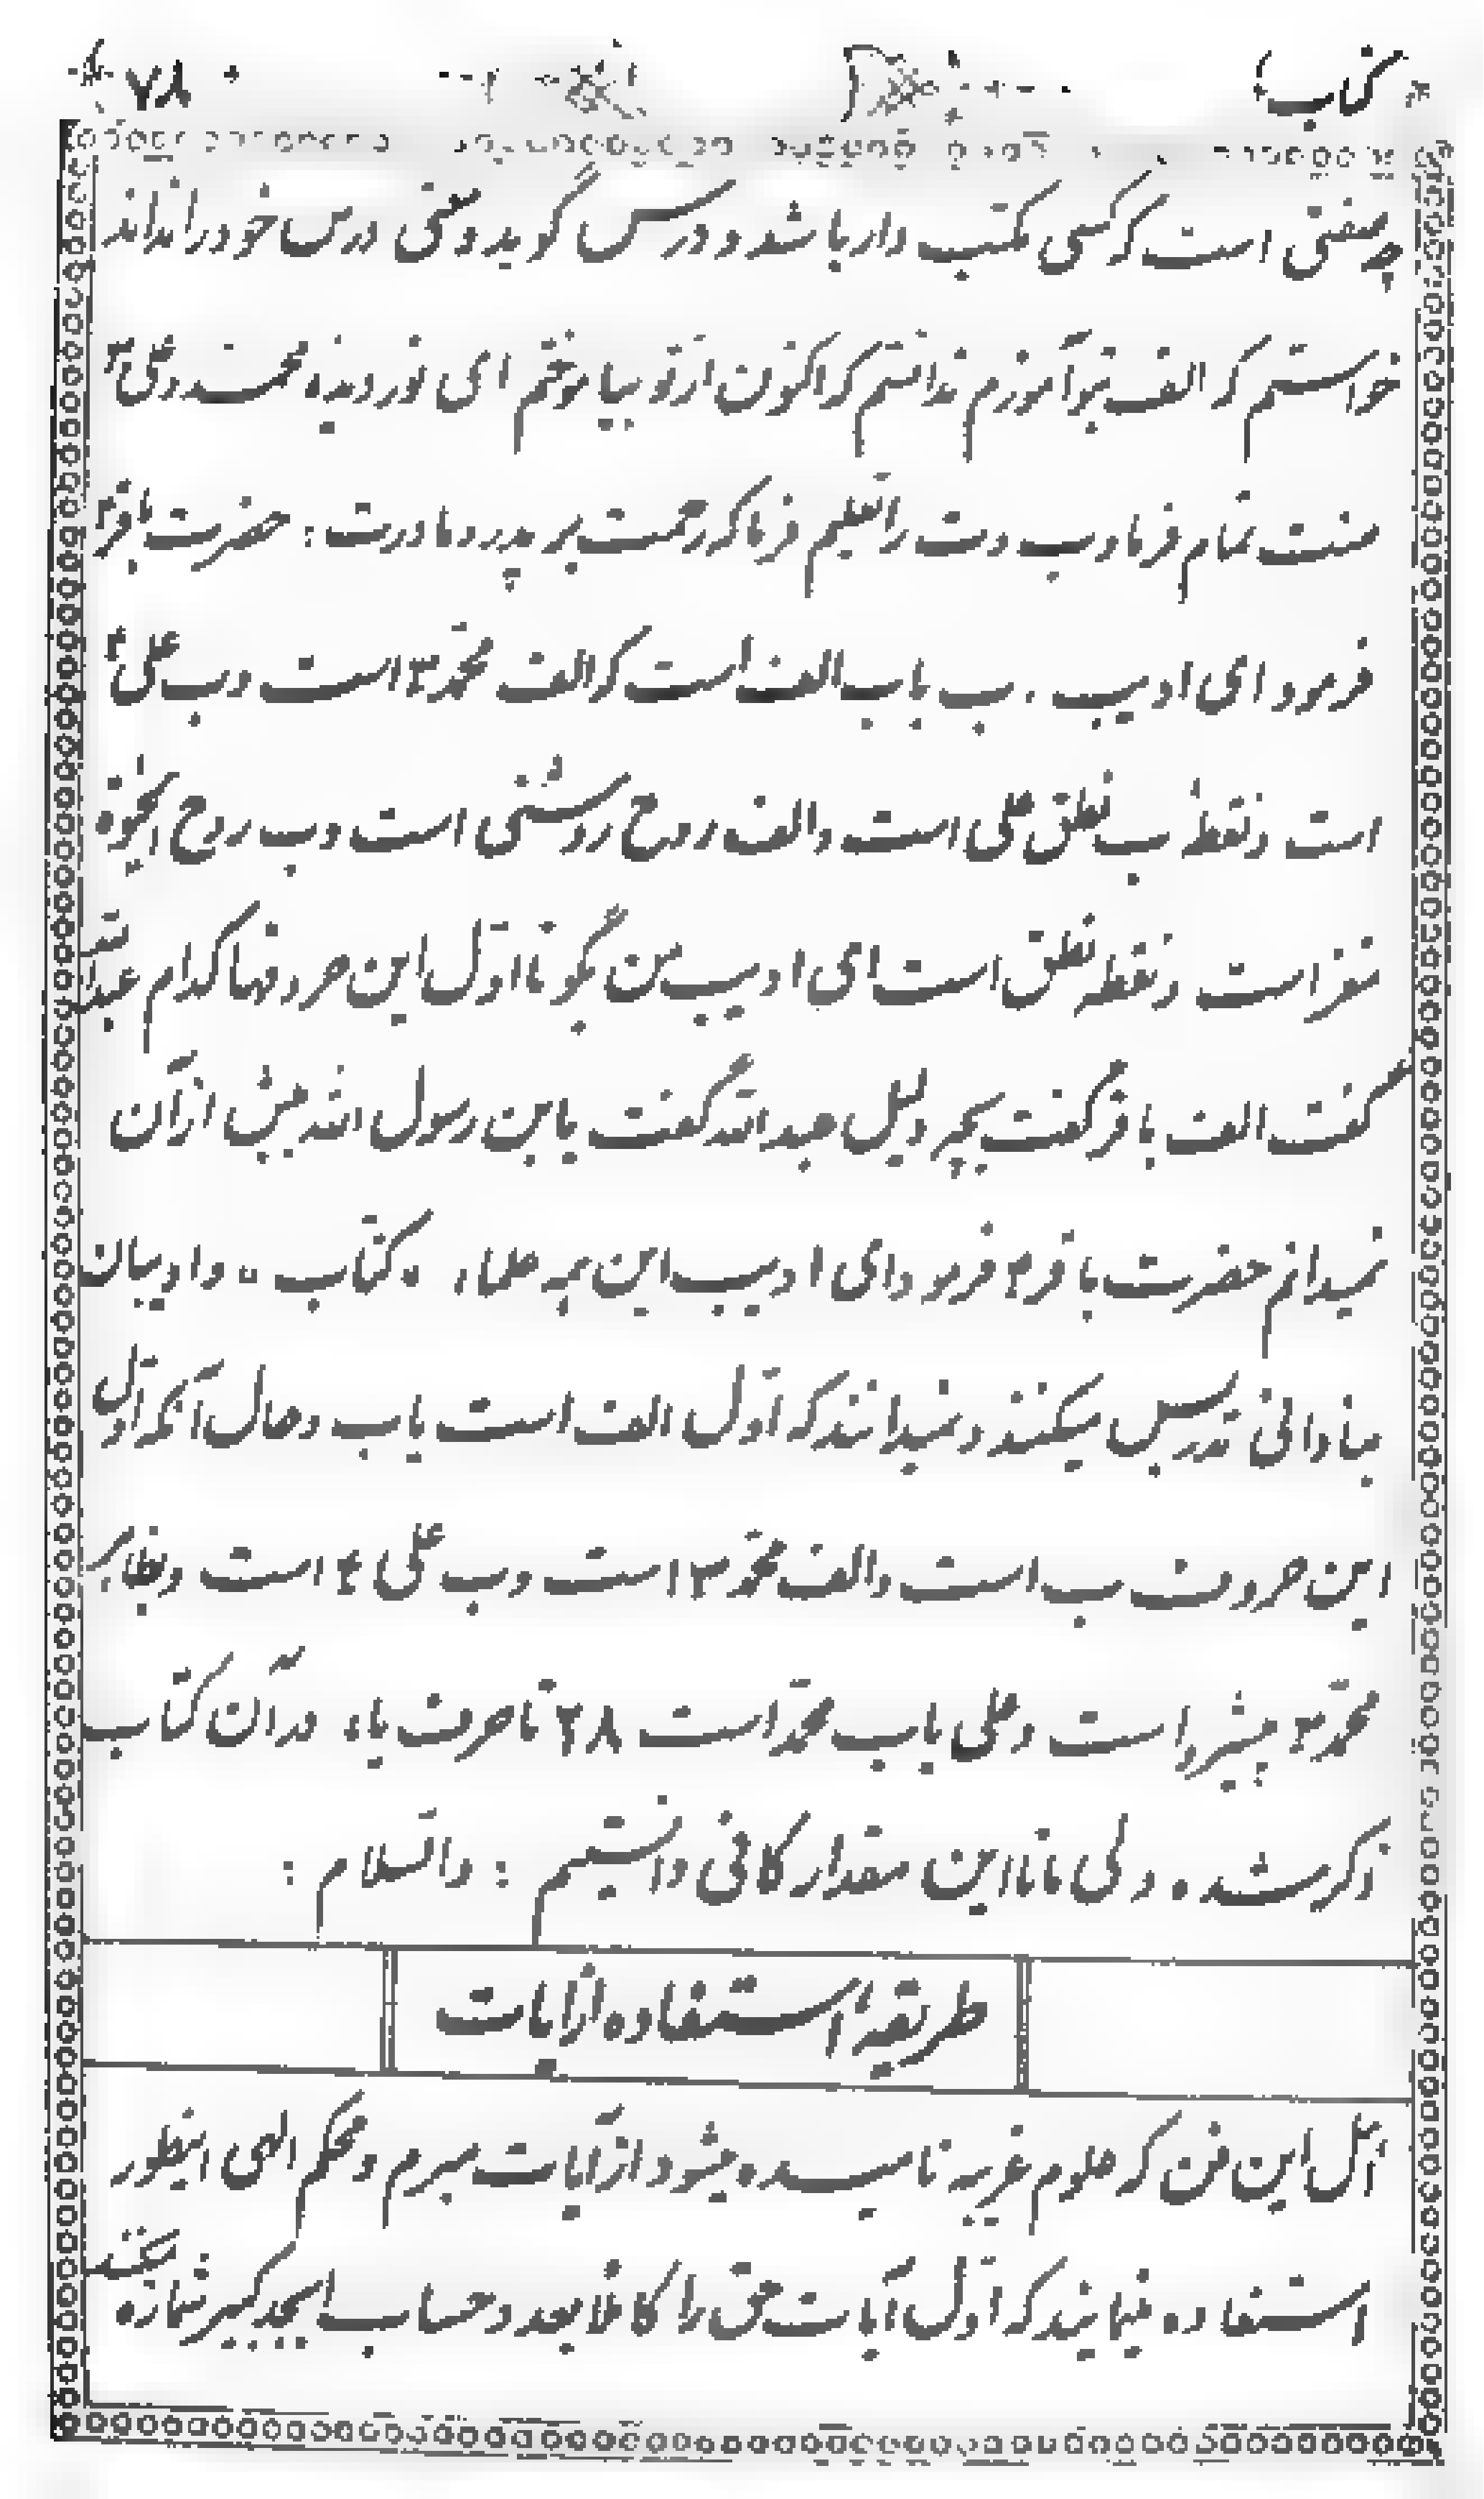 کتاب ۷۸
چه صفتی است که کسی مکتب دار باشد و درس گوید و معنی درس خود را نداند
خواستم که الف بتو آموزم ندانستم که اکنون از تو بیاموختم ای نور دیدهٔ محمد و علی ع
منت تمام فرما و ب و ت را تعلیم فرما که رحمت بر پدر و مادرت : حضرت باقر ع
فرمود ای ادیب . ب باب الف است که الف محمّد ص است و ب علی ع
است و نقطهٔ ب نطق علی است و الف روح روشنی است و ب روح الحیوة
مغز است و نقطه نطق است ای ادیب من بگو تا اوّل این حروفها کدام عبدالله
گفت الف باقر گفت بچه دلیل عبدالله گفت یابن رسول الله بیش از آن
نمیدانم حضرت باقر ع فرمود ای ادیب این همه علماء «کتاب» و ادیبان
بنادانی تدریس میکنند و نمیدانند که اوّل الف است یا ب و حال آنکه اوّل
این حروف ب است و الف محمّد ص است و ب علی ع است و بظاهر
محمّد ص پیشرو است و علی باب محمّد است ۲۸ تا حرف یاء در آن کتاب
ذکر شده ولی ما تا این مقدار کافی دانستیم : والسلام :
طریقهٔ استفاده از آیات
اهل این فن که علوم غریبه نامیده میشود از آیات مبرم و محکم الهی اینطور
استفاده مینمایند که اوّل آیات حق را کاملا بعدد و حساب ابجد کبیر شماره میکنند